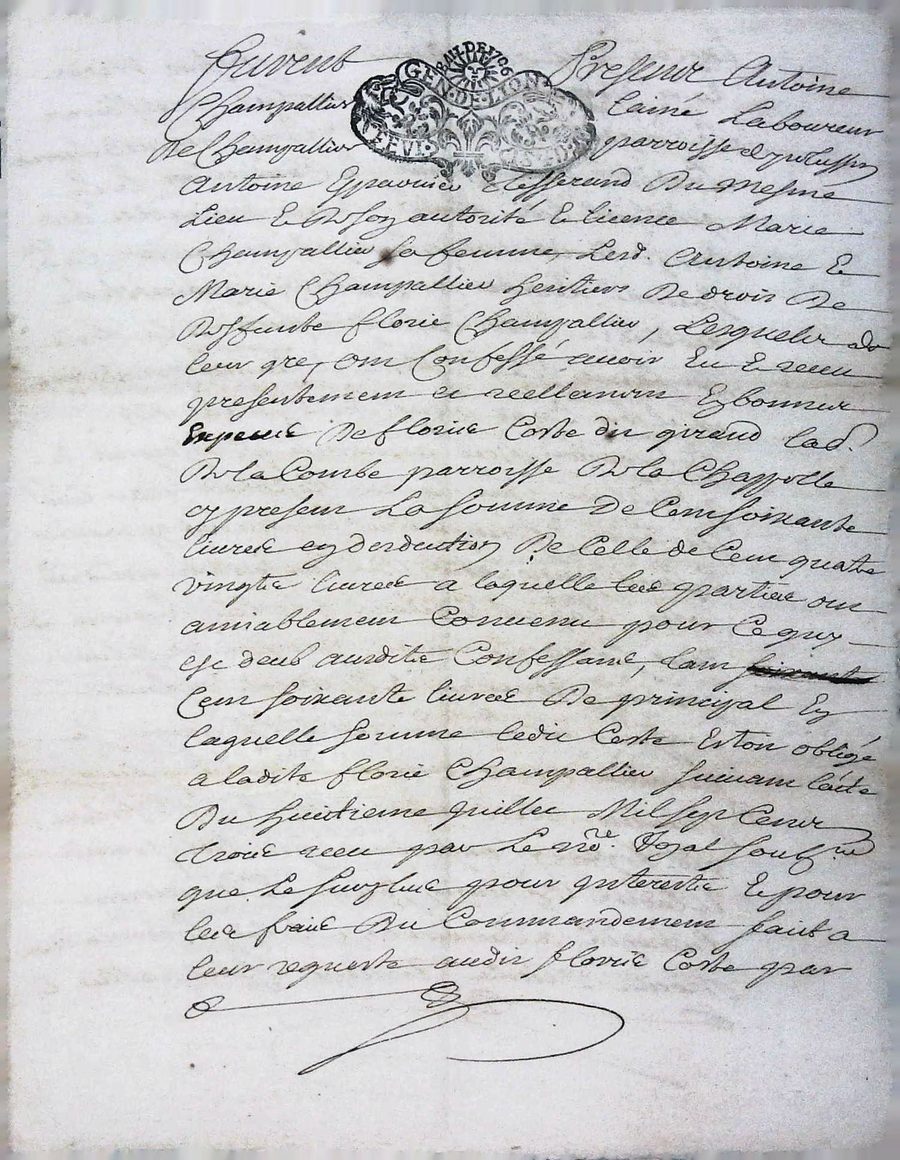 furent Presens Antoine
Champallier laisné Laboureur
de Champallier parroisse
Antoine tisserand du mesme
Lieu & de son autorité & licence Marie
Champallier sa femme, Lesd. Antoine &
Marie Champallier heritiers de droit de
deffunte florie Champallier, Lesquels de
leur gre, ont Confessé avoir Eu & receu
presentement et reellement En bonnes
Especes de florie Coste dit girand
de la Combe parroisse de la Chappelle
cy present La somme de Cent soixante
livres en desduction de Celle de Cent quatre
vingts livres a laquelle les parties ont
amiablement Convenu pour Ce quy
est deub ausdits Confessants, tant
Cent soixante livres de principal En
laquelle somme ledit Coste Estoit obligé
a ladite florie Champallier suivant l'acte
du huitieme juillet Mil sept Cents
trois receu par Le no.re soub.né
que Le surplus pour interests & pour
les frais du Commandement fait a
leur requeste audit florie Coste par